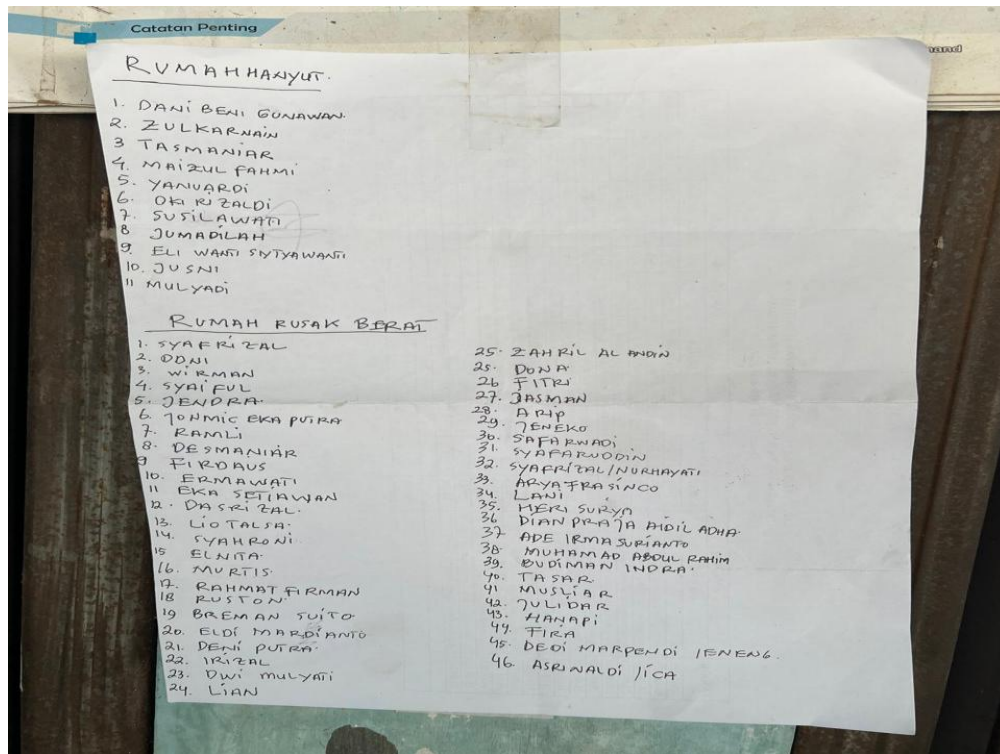 Catatan Penting
RUMAH HANYUT.
1. DANI BENI GUNAWAN.
2. ZULKARNAIN
3 TASMANIAR
4. MAIZUL FAHMI
5. YANUARDI
6. OKI RIZALDI
7. SUSILAWATI
8 JUMADILAH
9. ELI WANTI
10. JUSNI
11 MULYADI
RUMAH RUSAK BERAT
1. SYAFRIZAL
2. DONI
3. WIRMAN
4. SYAIFUL
5. JENDRA
6. JONMIC EKA PUTRA
7. RAMLI
8. DESMANIAR
9 FIRDAUS
10. ERMAWATI
11 EKA SETIAWAN
12. DASRIZAL.
13. LIO TALSA.
14. SYAHRONI
15 ELNITA.
16. MURTIS.
17. RAHMAT FIRMAN
18 RUSTON
19 BREMAN SUITO
20. ELDI MARDIANTO
21. DENI PUTRA.
22. IRIZAL
23. DWI MULYATI
24. LIAN
25. ZAHRIL AL ANDIN
25. DONA
26 FITRI
27. JASMAN
28. ARIP
29. JENEKO
30. SAFARWADI
31. SYAFARUDDIN
32. SYAFRIZAL/NURHAYATI
33. ARYA FRASINCO
34. LANI
35. HERI SURYA
36 DIAN PRAJA AIDIL ADHA
37 ADE IRMA SURIANTO
38. MUHAMAD ABDUL RAHIM
39. BUDIMAN INDRA.
40. TASAR
41 MUSLIAR
42. JULIDAR
43. HANAPI
44. FIRA
45. DEDI MARPENDI /ENENG.
46. ASRINALDI /ICA